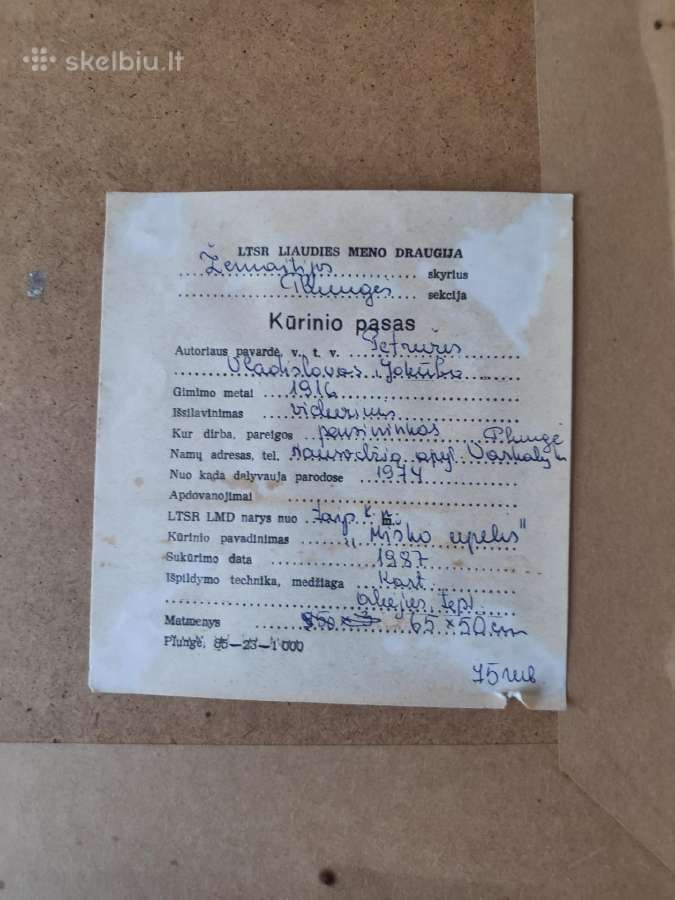 skelbiu.lt
LTSR LIAUDIES MENO DRAUGIJA
Žemaitijos skyrius
Plungės sekcija
Kūrinio pasas
Autoriaus pavardė, v., t. v. Petrušis
Vladislovas Jokūbo
Gimimo metai 1916
Išsilavinimas vidurinis
Kur dirba, pareigos pensininkas Plungė
Namų adresas, tel. Nausodžio apyl.
Nuo kada dalyvauja parodose 1974
Apdovanojimai
LTSR LMD narys nuo
Kūrinio pavadinimas „Miško upelis"
Sukūrimo data 1987
Išpildymo technika, medžiaga Kart.
aliejus, tept.
Matmenys 65 × 50 cm
Plungė, 95-23-1 000
75 rub